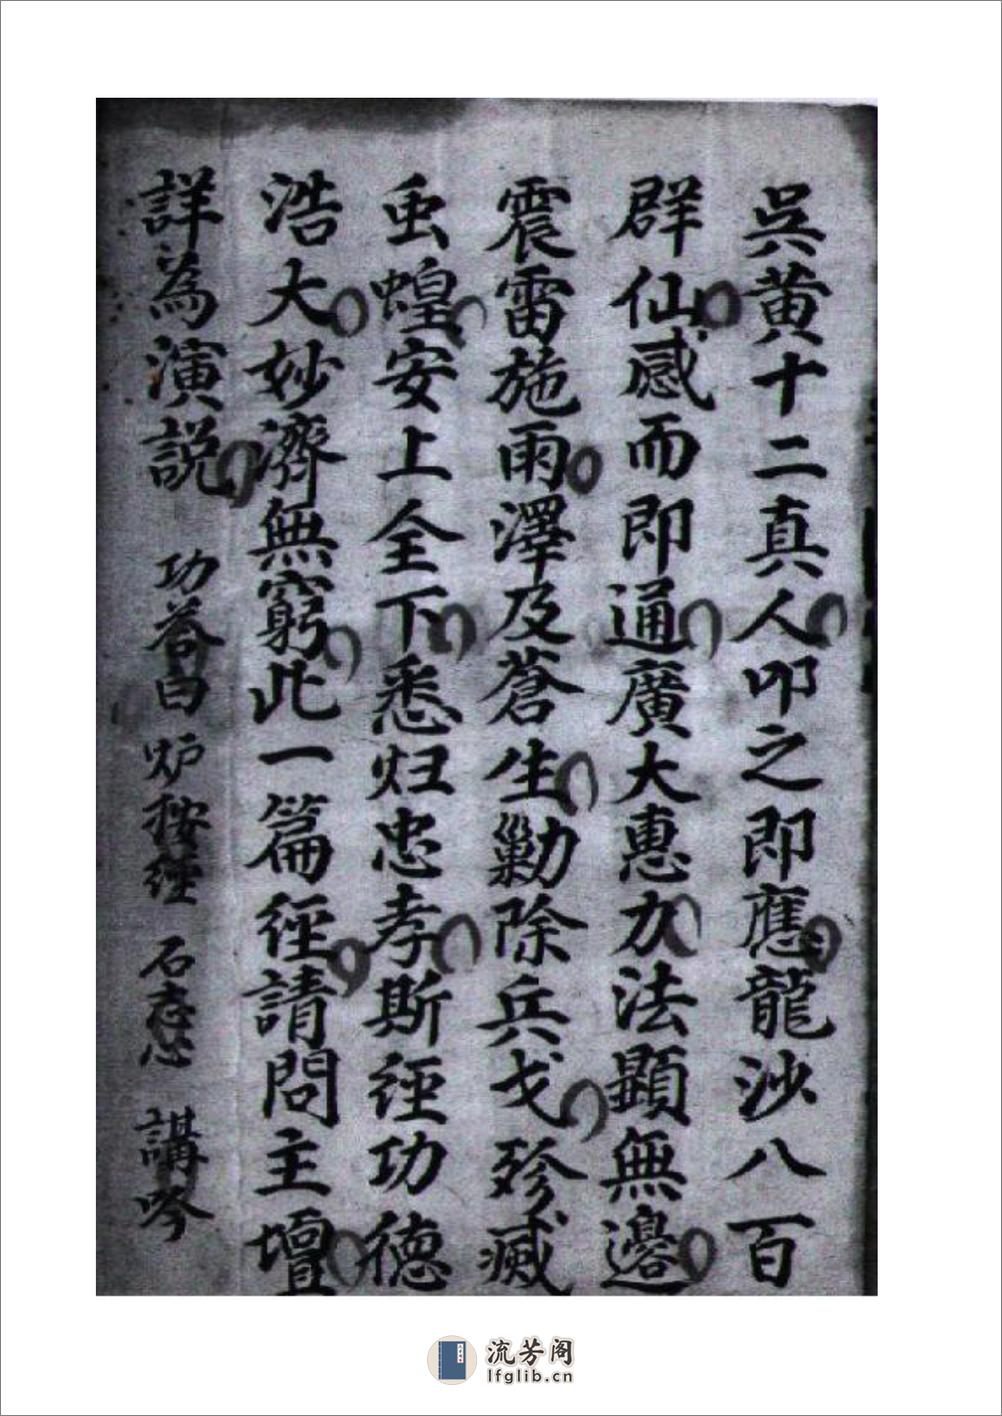 吳黄十二真人叩之即應龍沙八百
群仙感而即通廣大惠力法顕無邊
震雷施雨澤及蒼生勦除兵戈殄滅
虫蝗安上全下悉归忠孝斯經功德
浩大妙濟無窮此一篇經請問主壇
詳為演説 功荅白 炉按經 石志心 講吟
流芳阁
lfglib.cn